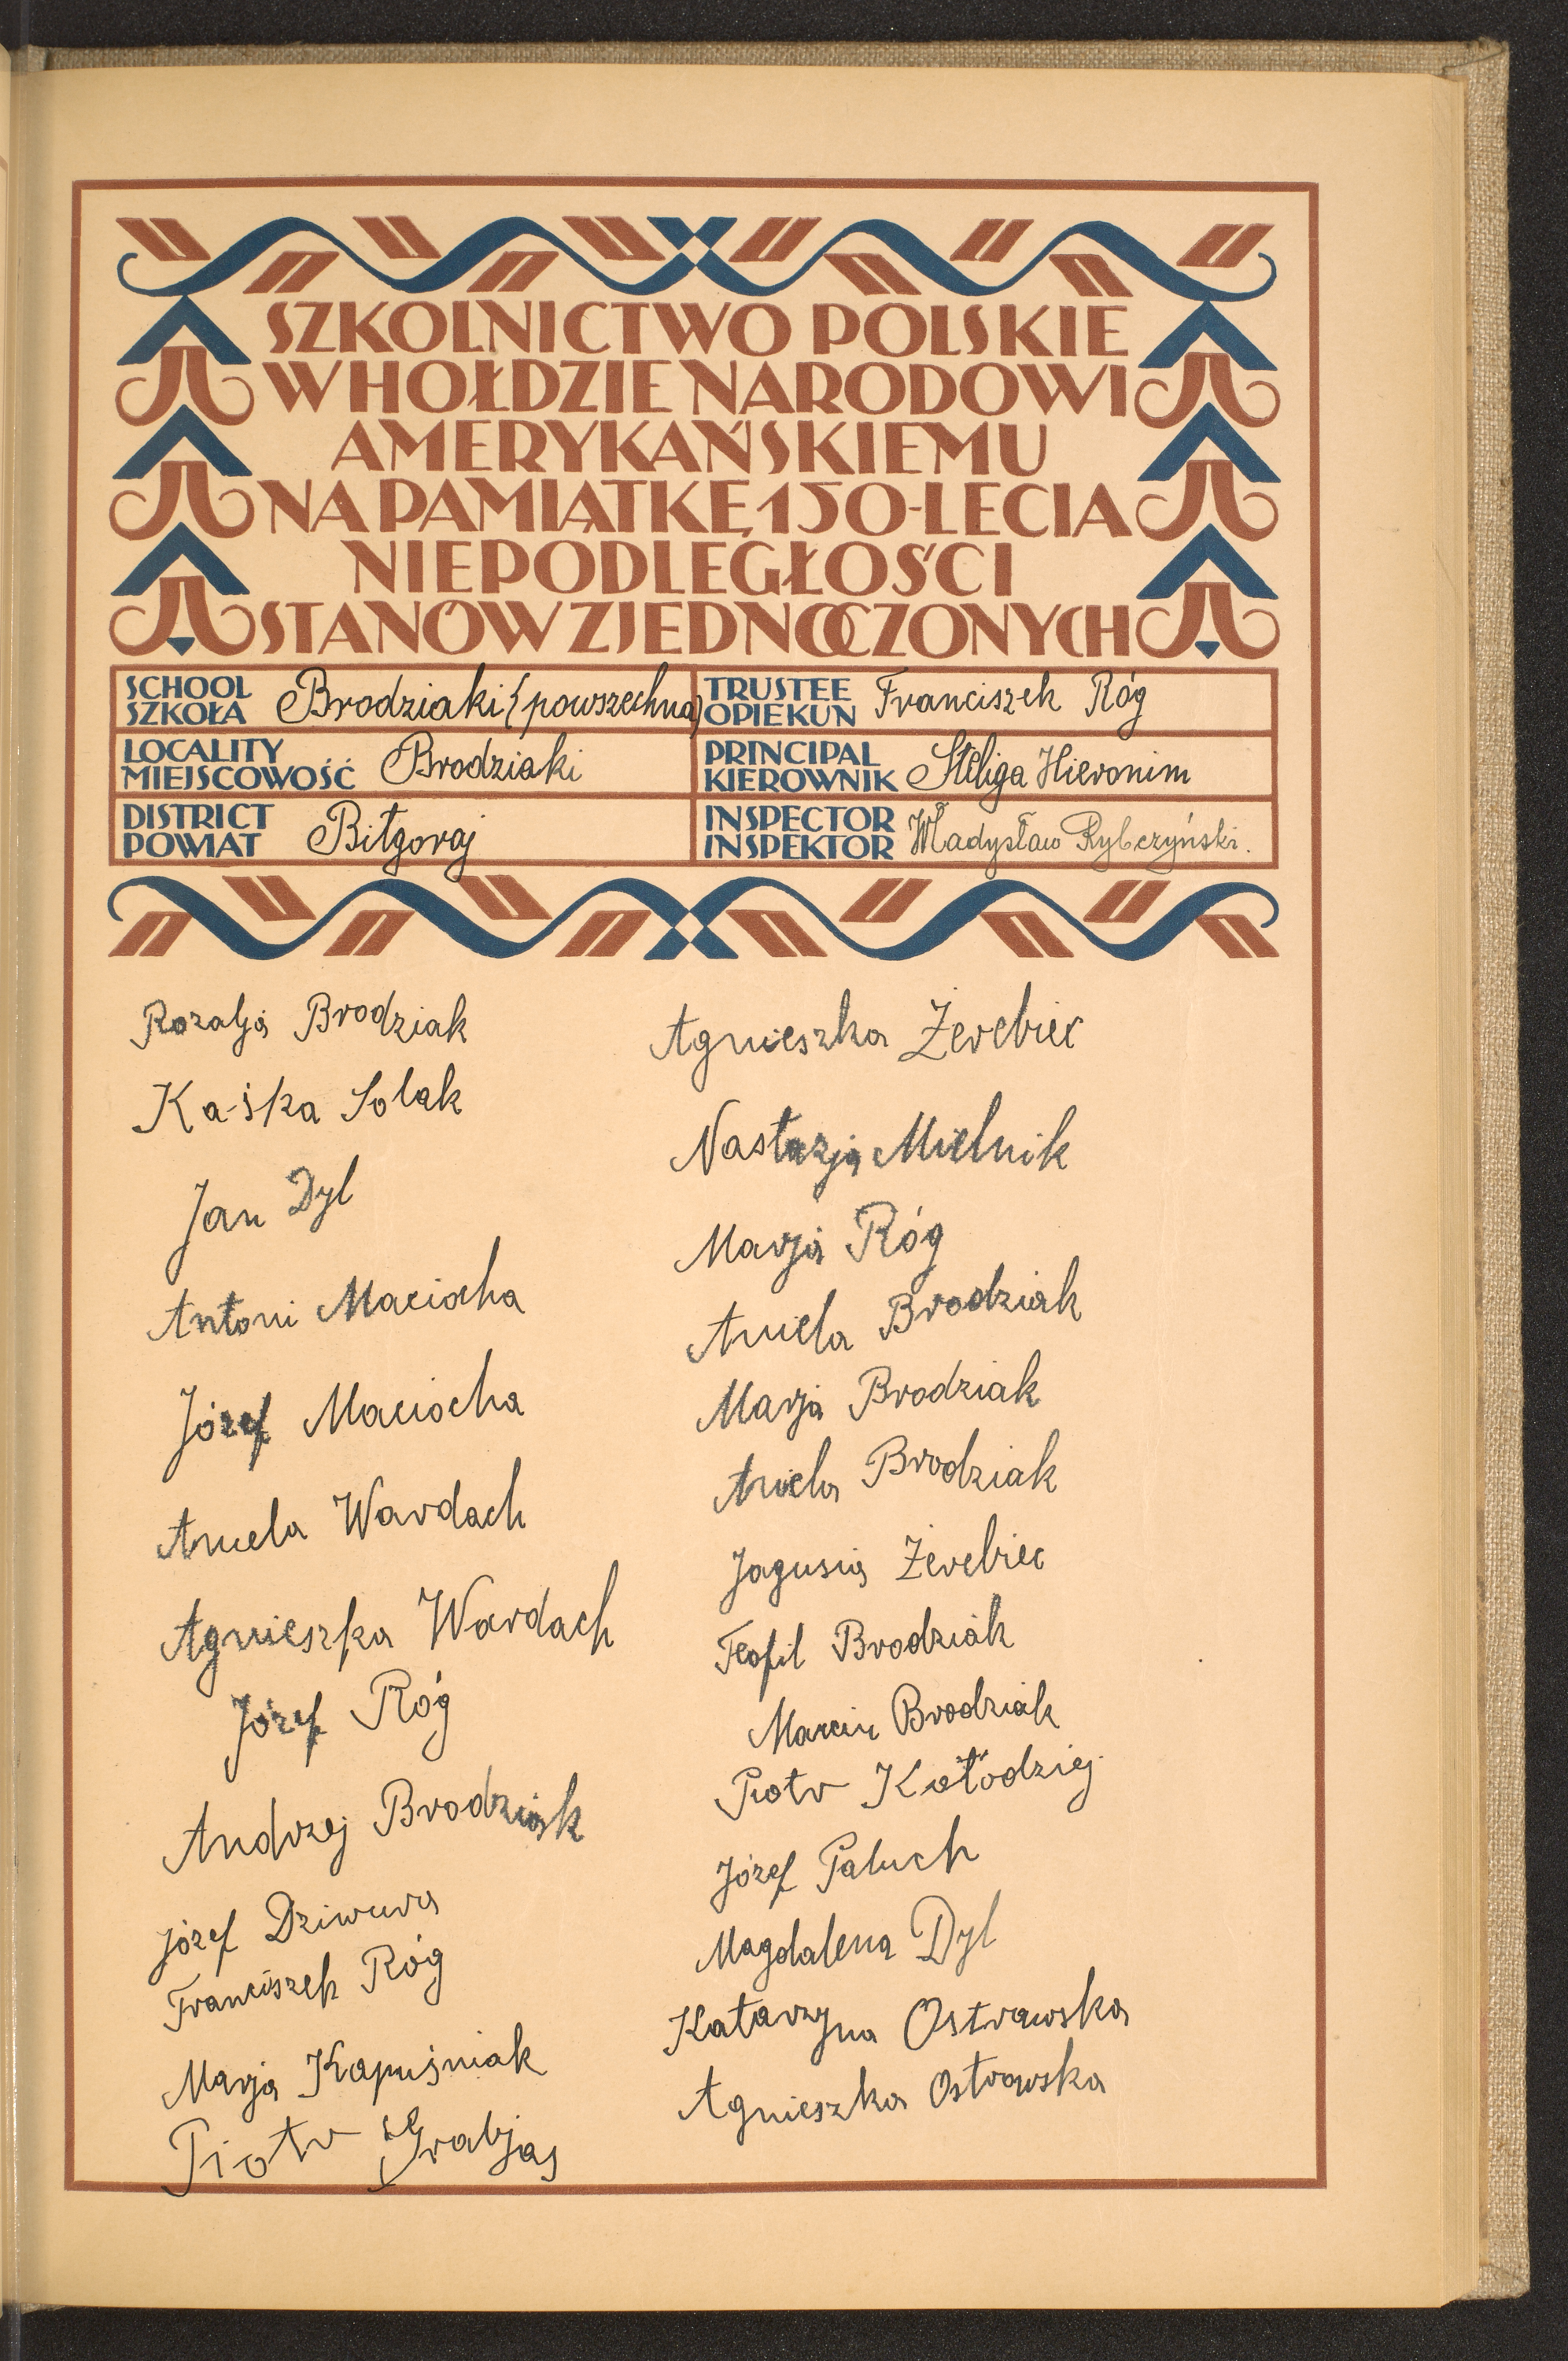 SZKOLNICTWO POLSKIE
W HOŁDZIE NARODOWI
AMERYKAŃSKIEMU
NA PAMIĄTKĘ 150-LECIA
NIEPODLEGŁOŚCI
STANÓW ZJEDNOCZONYCH
SCHOOL
SZKOŁA Brodziaki (powszechna)
TRUSTEE
OPIEKUN Franciszek Róg
LOCALITY
MIEJSCOWOŚĆ Brodziaki
PRINCIPAL
KIEROWNIK Steliga Hieronim
DISTRICT
POWIAT Biłgoraj
INSPECTOR
INSPEKTOR Władysław Rybczyński.
Rozalja Brodziak
Ka-śka Solak
Jan Dyl
Antoni Maciocha
Józef Maciocha
Aniela Wardach
Agnieszka Wardach
Józef Róg
Andrzej Brodziak
Józef Dziwura
Franciszek Róg
Marja Kapuśniak
Piotr Grabjas
Agnieszka Żerebiec
Nastazja Mielnik
Marja Róg
Aniela Brodziak
Marja Brodziak
Aniela Brodziak
Jagusia Żerebiec
Teofil Brodziak
Marcin Brodziak
Piotr Kołodziej
Józef Paluch
Magdalena Dyl
Katarzyna Ostrowska
Agnieszka Ostrowska